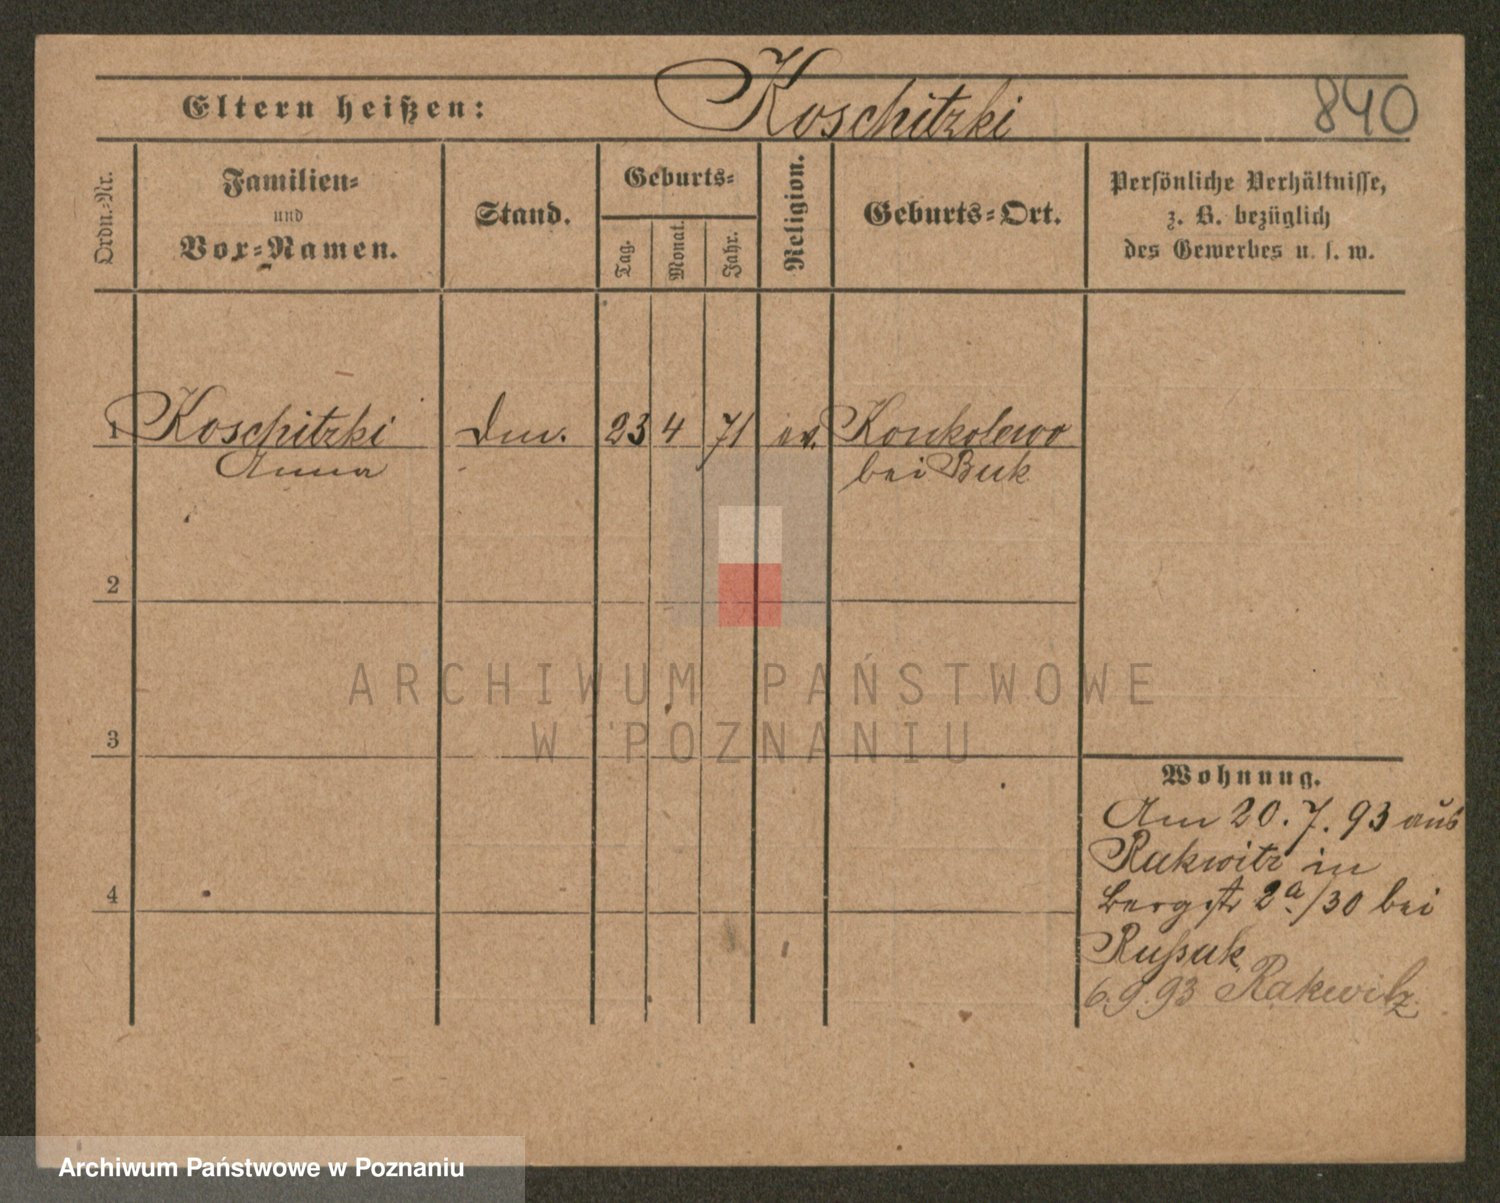 Koschitzki
840
Eltern heißen:
Ordn.-Nr.
Familien-
und
Vor-Namen.
Stand.
Geburts-
Tag.
Monat.
Jahr.
Religion.
Geburts-Ort.
Persönliche Verhältnisse,
z. B. bezüglich
des Gewerbes u. s. w.
1 Koschitzki 23 4 71 ev. Konkolewo
Anna bei Buk
2
3
4
Wohnung.
Am 20. 7. 93 aus
Rakwitz in
Bergstr 2a/30 bei
Rußak
6.9.93 Rakwitz
ARCHIWUM PAŃSTWOWE
W POZNANIU
Archiwum Państwowe w Poznaniu